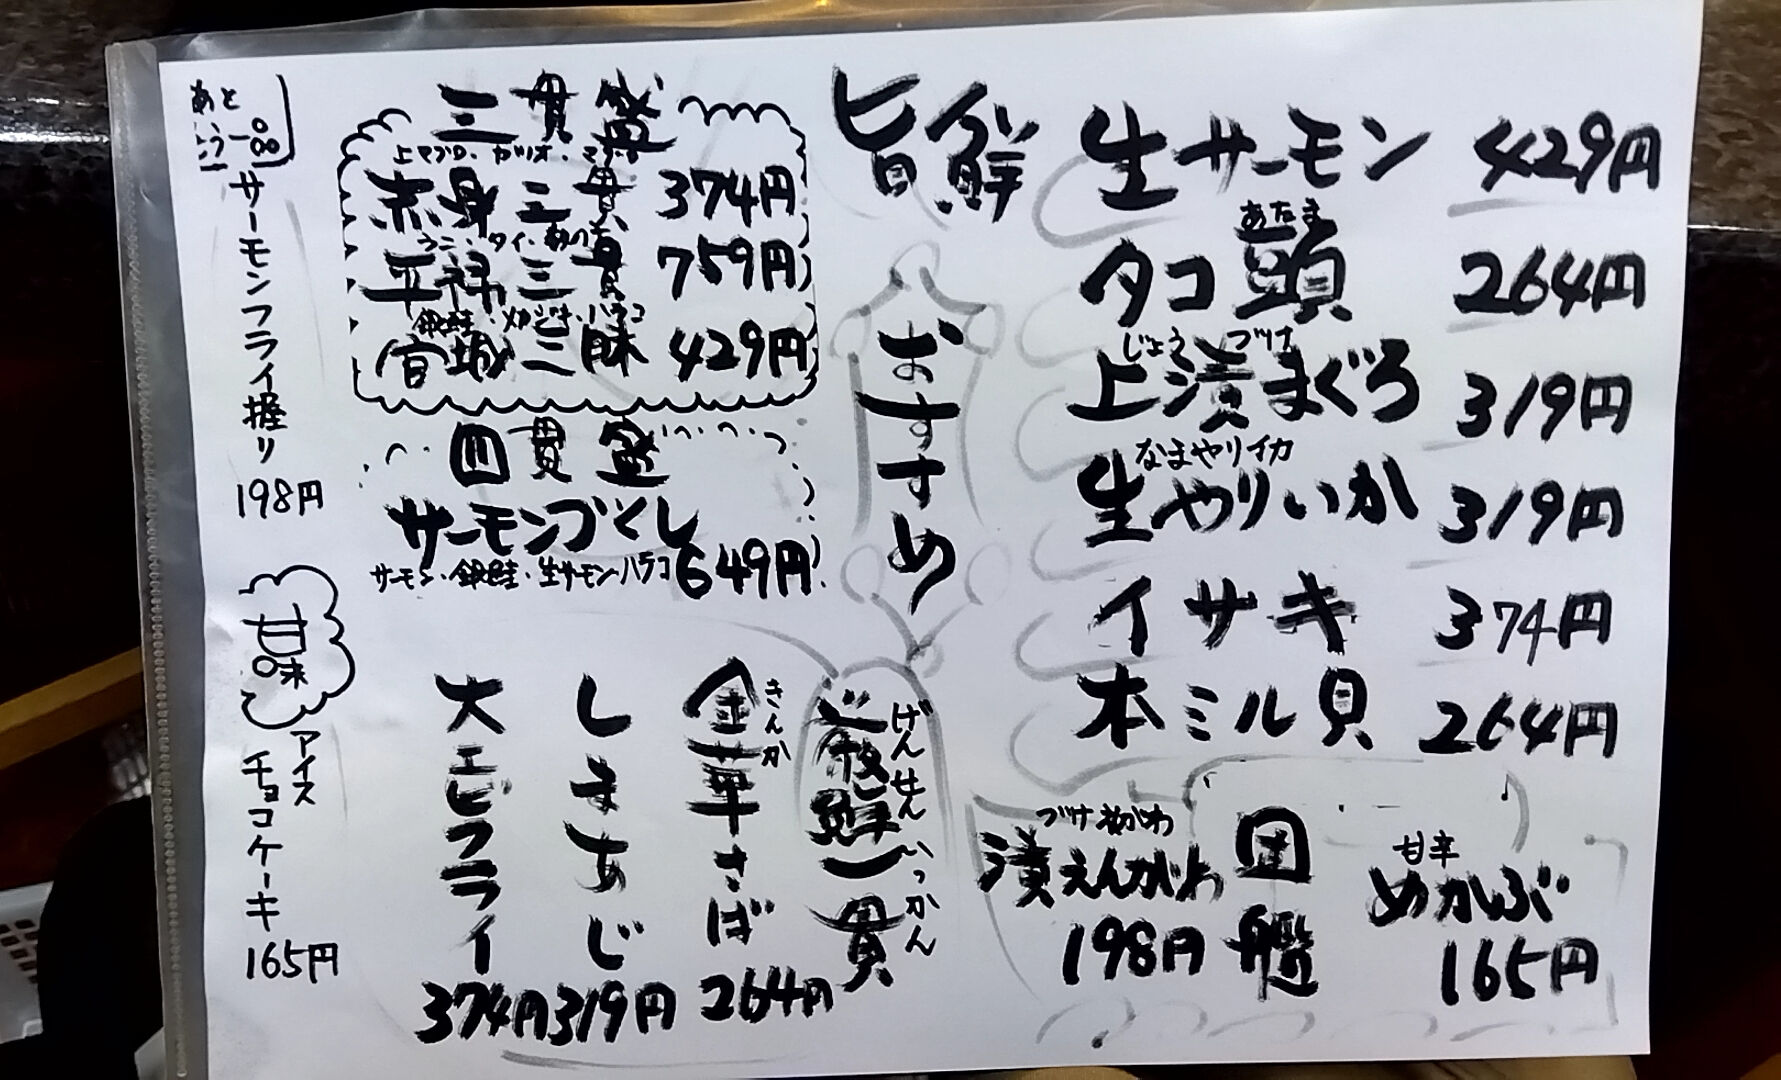 旨鮮
おすすめ
生サーモン 429円
あたま
タコ頭 264円
じょう づけ
上漬まぐろ 319円
なまやりイカ
生やりいか 319円
イサキ 374円
本ミル貝 264円
軍艦
漬えんがわ
198円
甘辛
めかぶ
165円
三貫盛
赤身三貫 374円
ウニ・タイ・
三貫 759円
銀鮭・ ・ハラコ
宮城三昧 429円
四貫盛
サーモンづくし
サーモン・銀鮭・生サーモン・ハラコ 649円
げんせんいっかん
厳鮮一貫
きんか
金華さば
264円
しまあじ
319円
大エビフライ
374円
あと
もう一品
サーモンフライ握り
198円
甘味
アイス
チョコケーキ
165円